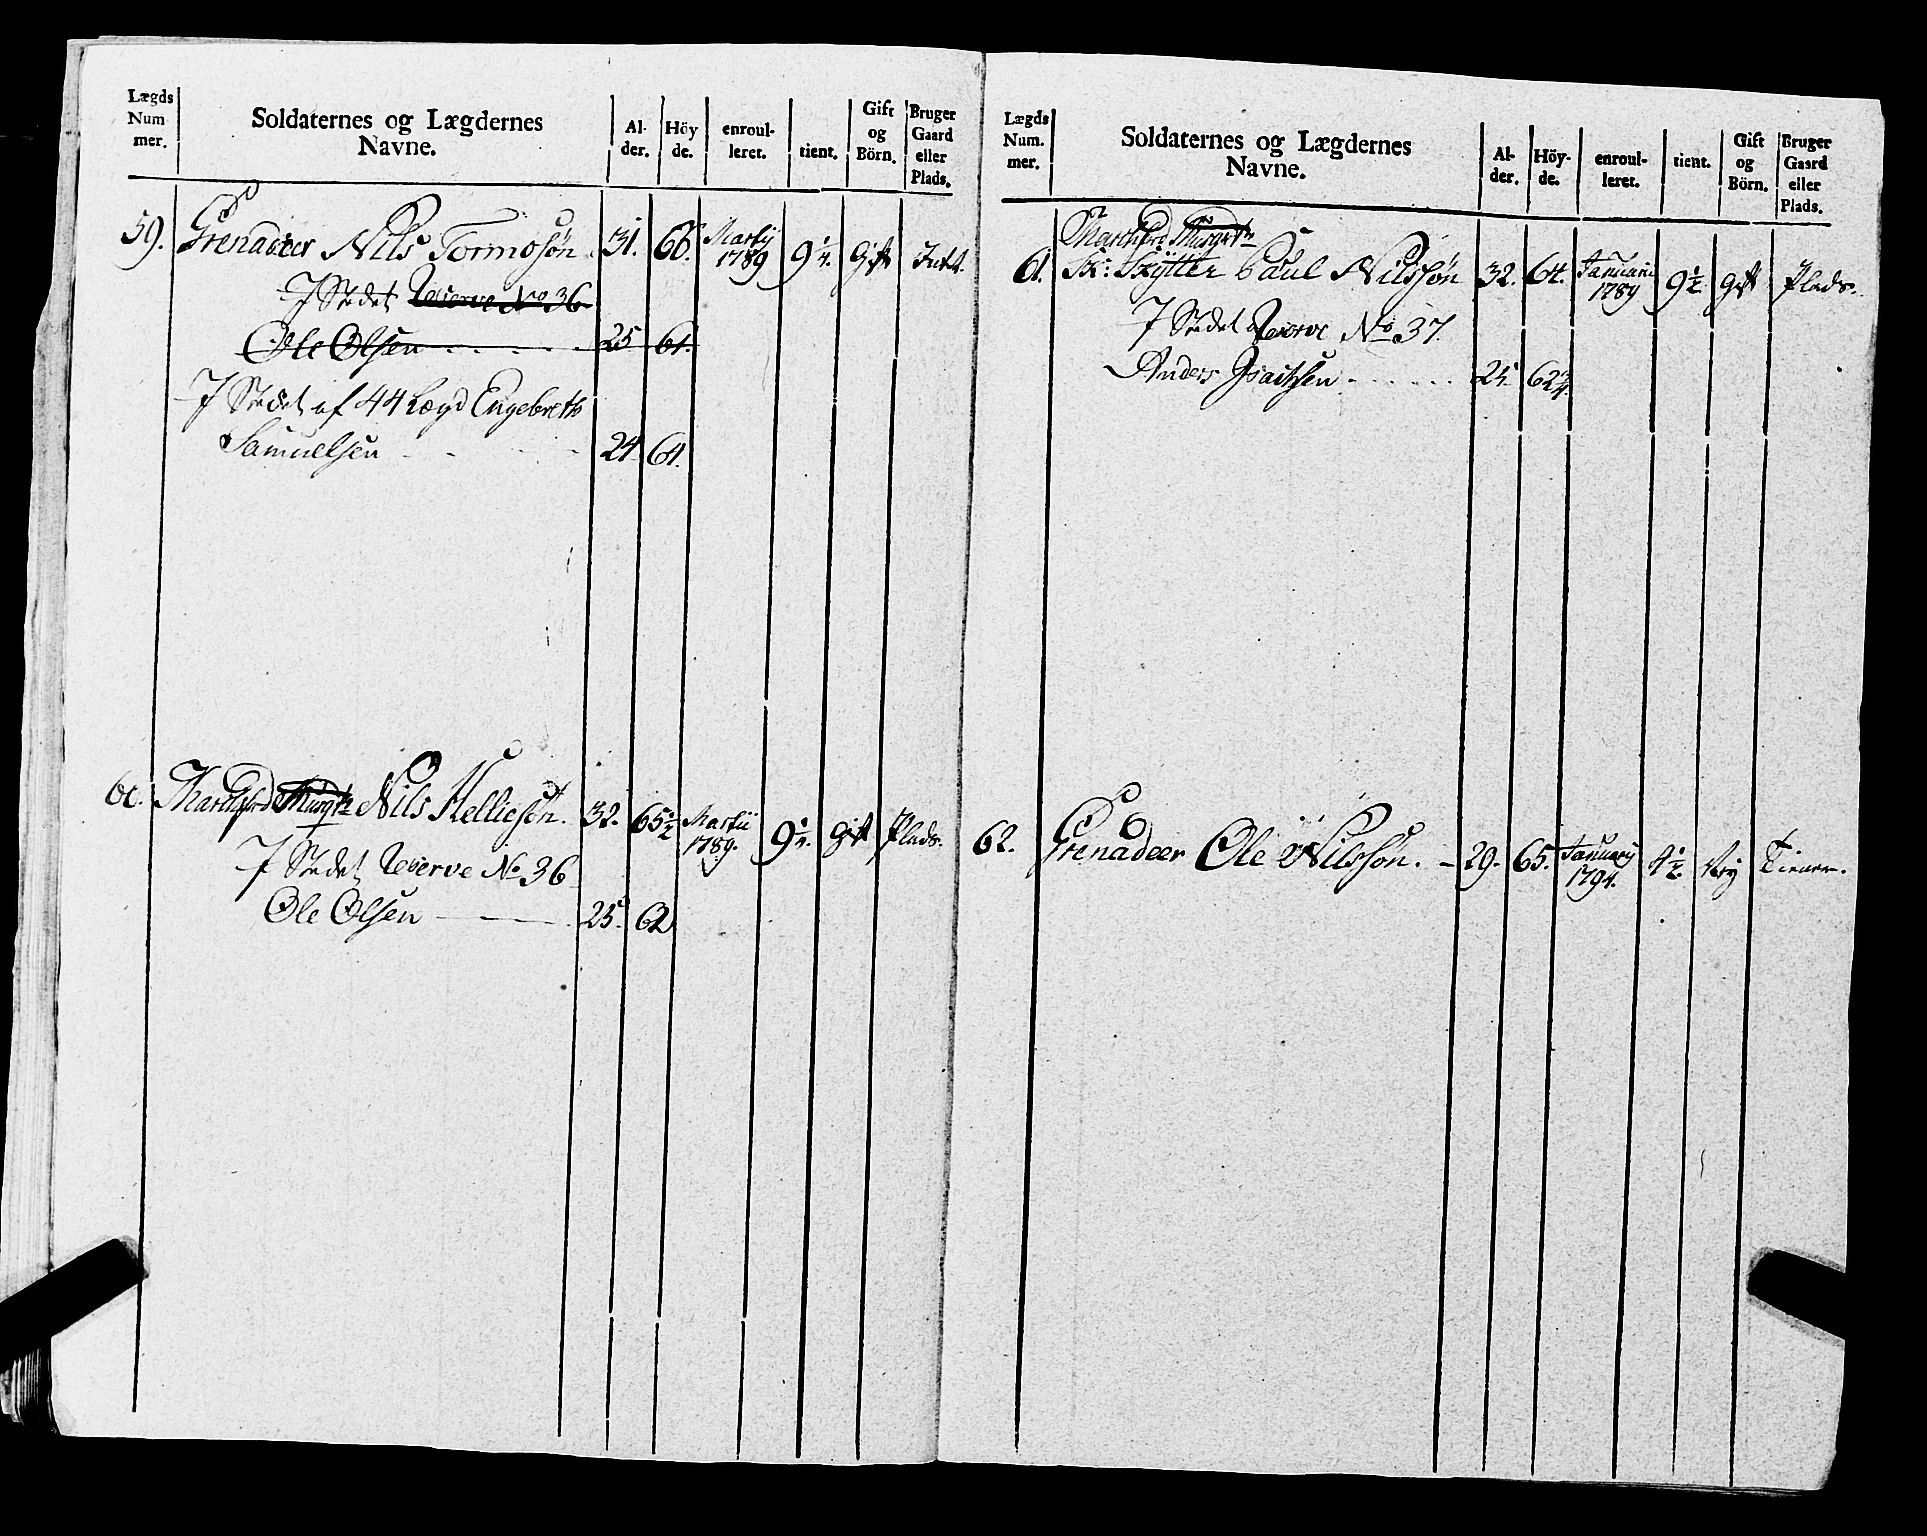 Lægds Num mer. | Soldaternes og Lægdernes Navne. | Al- der. | Höy de. | enroul- leret. | tient. | Gift og Börn. | Bruger Gaard eller Plads.
59. Grenadeer Nils Tormosøn 31. 66. Martij 1789 9 1/4. Gift
I Stedet Reserve No 36
Ole Olsen 25 61.
I Stedet af 44 Lægd Engebreth
Samuelsen 24 61.
60. Nils Helliesøn. 32. 65 1/2 Martii 1789. 9 1/4. Gift Plads.
I Stedet Reserve No 36
Ole Olsen 25. 62
Lægds Num. mer. | Soldaternes og Lægdernes Navne. | Al- der. | Höy- de. | enroul- leret. | tient. | Gift og Börn. | Bruger Gaard eller Plads.
61. Sk: Skytter Paul Nilssøn 32. 64. Januarii 1789 9 1/2. Gift Plads.
I Stedet Reserve No 37.
Anders 25 62 3/4.
62. Grenadeer Ole Nilssøn. 29. 65. Januarij 1794. 4 1/2. Tiener.